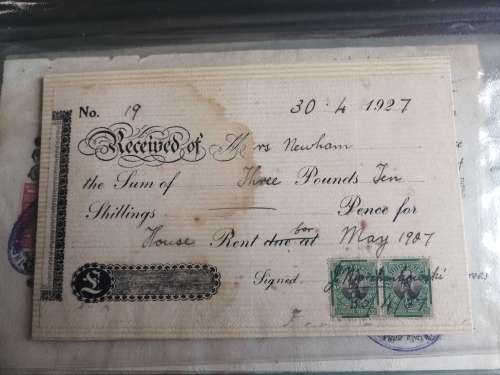 No. 19 30 · 4 1927
Received of Mrs Newham
the Sum of Three Pounds Ten
Shillings — Pence for
House Rent due at for May 1927
Signed
£